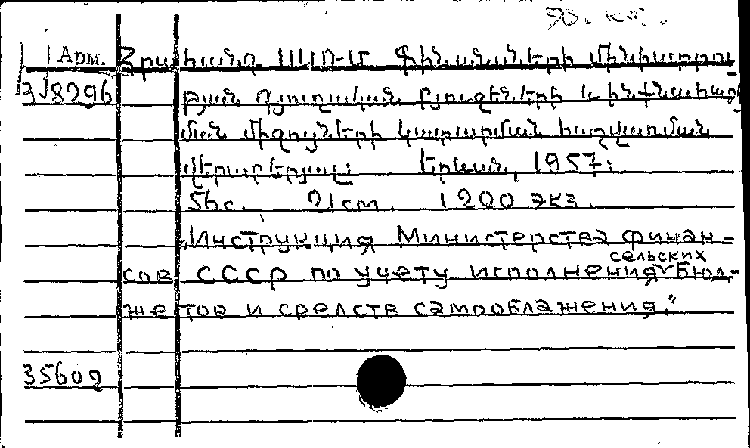 50. кп.
Арм. Հրահանգ ՍՍՌՄ Ֆինանսների մինիստրու-
3/8296 թյան գյուղական բյուջեների և ինքնահարկ
ման միջոցների կատարման հաշվառման
վերաբերյալ: Երևան, 1957:
56с. 21см. 1200 экз.
„Инструкция Министерства финан-
сов СССР по учету исполнения сельских бюд-
жетов и средств самооблажения."
35602